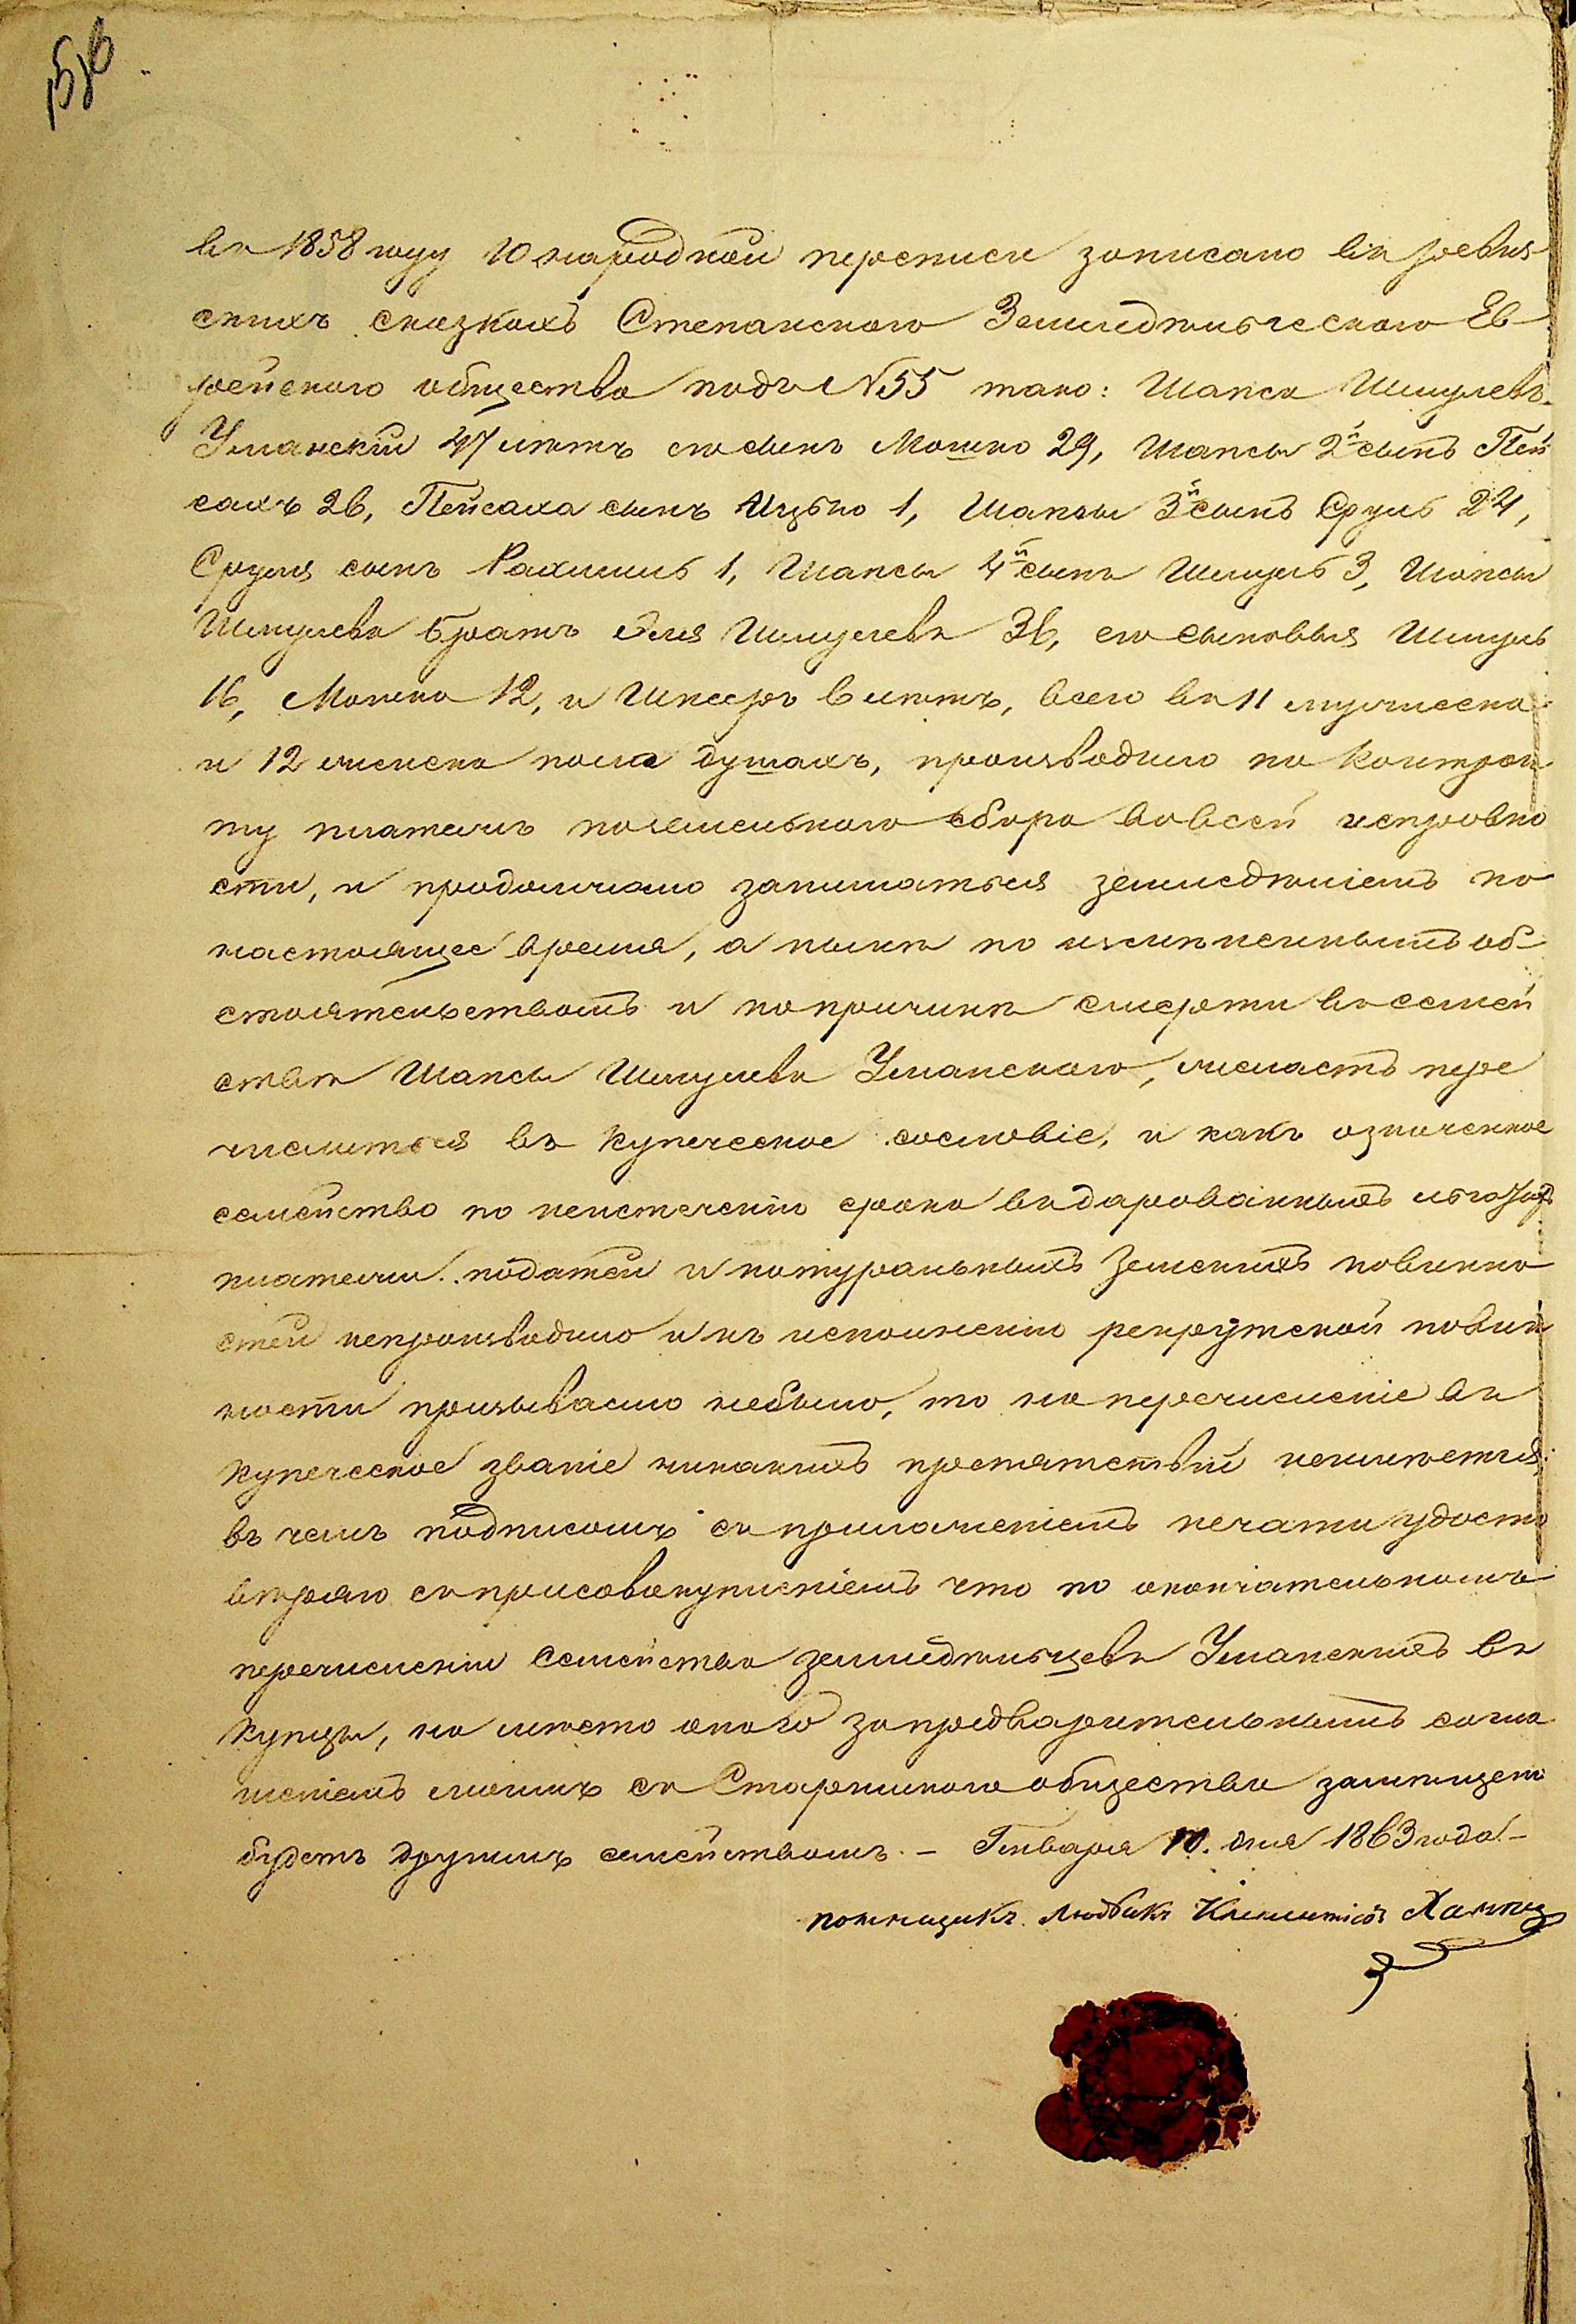 въ 1858 году 10 народной переписи записано въ ревиз-
скихъ сказкахъ Степанского Земледѣльческого Ев-
рейского общества подъ №55 тако: Шапса Шмулевъ
Уманскій 47 лѣтъ его сынъ Мошко 29, Шапсы 2й сынъ Пей
сахъ 26, Пейсаха сынъ Ицько 1, Шапсы 3й сынъ Сруль 24,
Сруля сынъ Рахмиль 1, Шапсы 4й сынъ Шмуль 3, Шапсы
Шмулева братъ Эля Шмулевъ 36, его сыновья Шмуль
16, Мошко 12, и 6 лѣтъ, всего въ 11 мужеска
и 12 женска пола душахъ, производило по контрак
ту платежъ поземельного сбора во всей исправно
сти, и продолжало заниматься земледѣліемъ по
настоящее время, а нынѣ по измѣненнымъ об
стоятельствамъ и по причинѣ смерти въ семей
ствѣ Шапсы Шмулева Уманского, желаетъ пере
числиться въ купеческое сословіе, и какъ означенное
семейство по неистеченію срока въ дарованныхъ льготахъ
платежи податей и натуральныхъ земскихъ повинно
стей непроизводило и къ исполненію рекрутской повин
ности призываемо небыло, то на перечисленіе въ
купеческое званіе никакихъ препятствій неимѣется;
въ чемъ подписомъ съ приложеніемъ печати удосто
вѣряю съ присовокупленіемъ что по окончательномъ
перечисленіи семейства земледѣльцевъ Уманскихъ въ
купцы, на мѣсто оного за предварительнымъ согла
шеніемъ моимъ съ общества замѣщено
будетъ другимъ семействомъ. – Генваря 10. дня 1863 года –
помѣщикъ Людвикъ